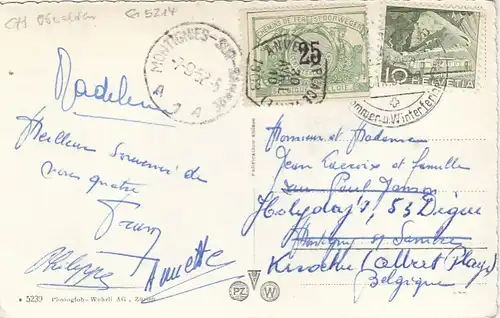 G 5214
MONTIGNIES-SUR-SAMBRE
7-9-52-5
A 3 A
CHEMINS DE FER SPOORWEGEN
25
10
HELVETIA
Sommer u. Winterferien
Madeleine
Meilleur Souvenir de
nous quatre
Philippe
Annette
Monsieur et Madame
Jean Lacroix et famille
rue Paul Janson
Holyday's, 53 Digue
Montigny s/ Sambre
Knocke (Albert Plage)
Belgique
5239 Photoglob-Wehrli AG., Zürich
PZ W